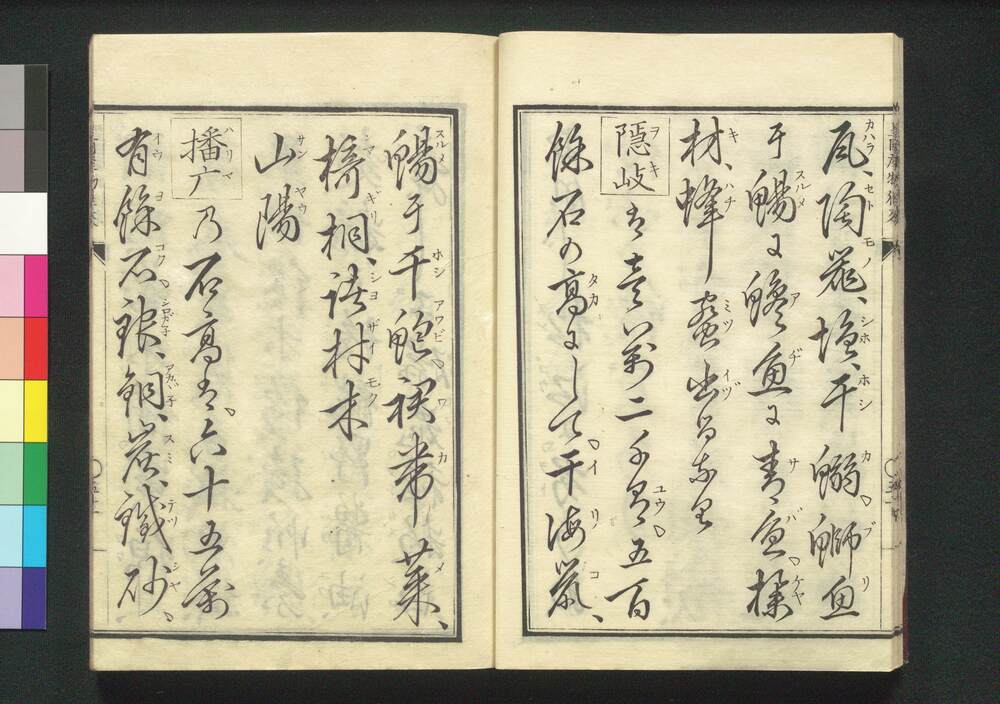 瓦、陶器、塩、干鰯。鰤魚
干鯣に鰺魚に青魚。欅
材、蜂蜜出る也
隠岐は壱萬二千有。五百
餘石の高にして。干海鼠、
鯣干干鮑。裙帯菜、
槗桐、諸材木
山陽
播广乃石高は。六十五萬
有餘石、銀、銅、炭、鐵砂、